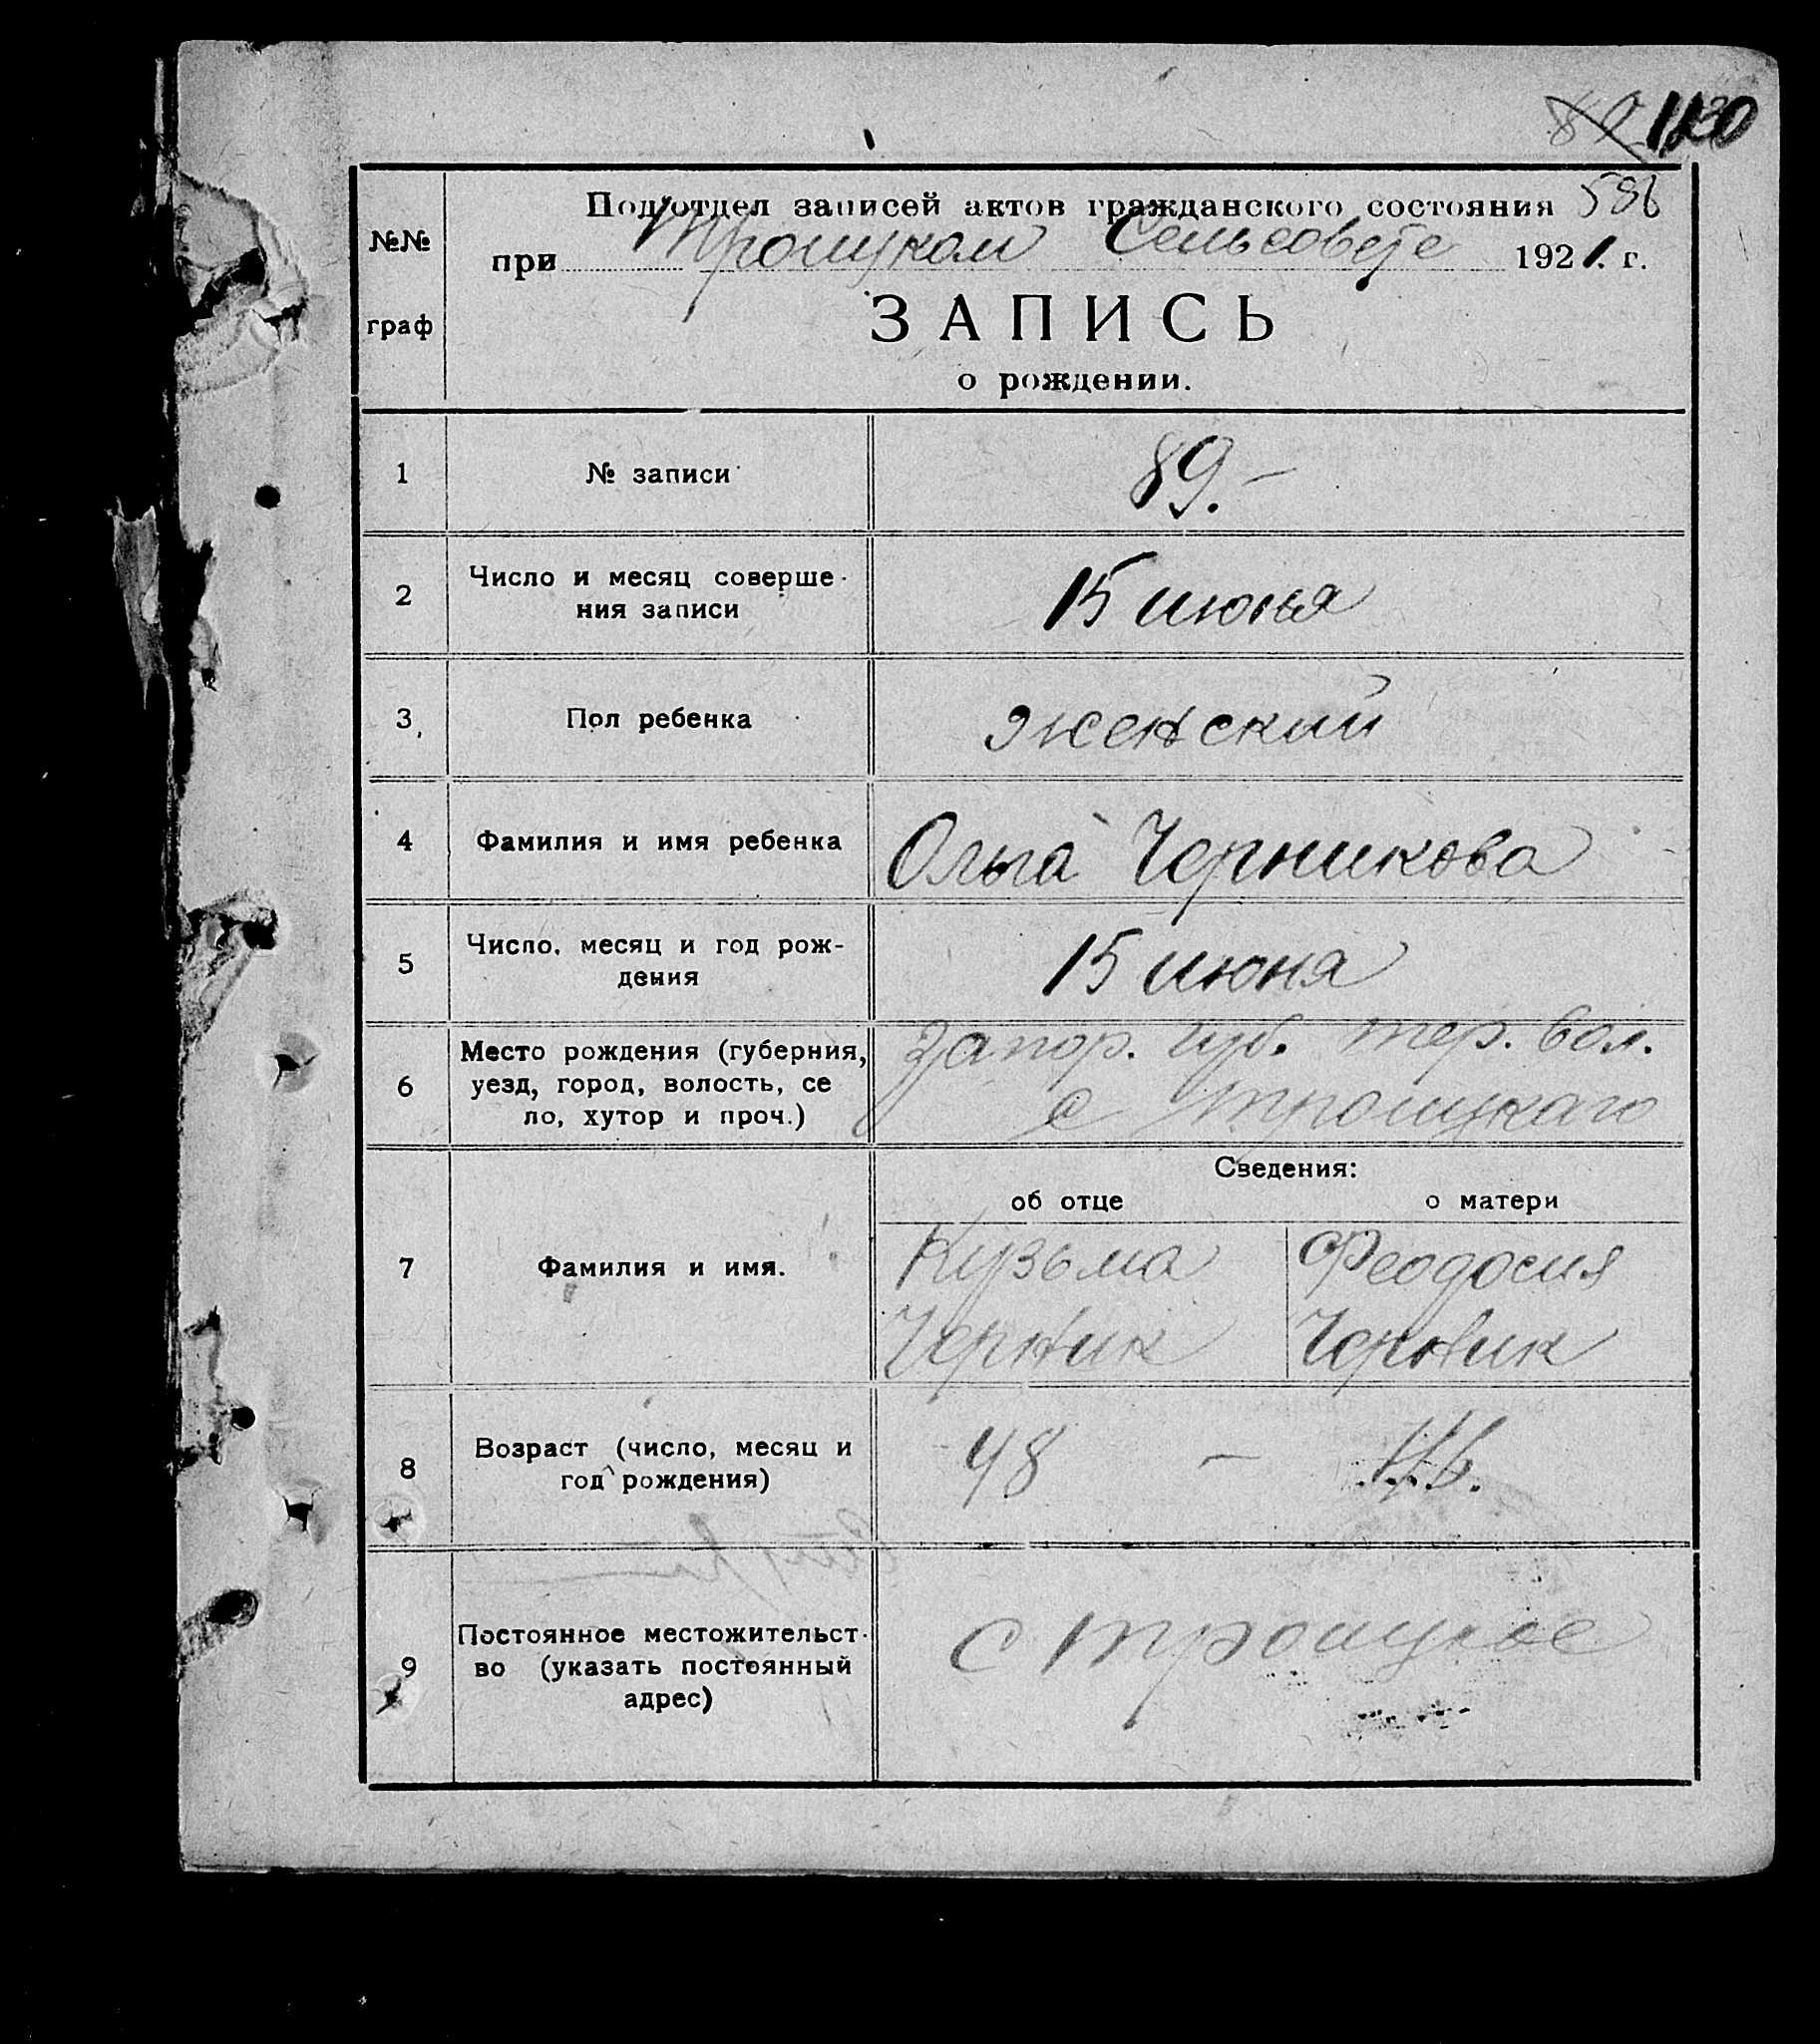 89
586
№№
граф
Подотдел записей актов гражданского состояния
при Троицком Сельсовете 1921. г.
ЗАПИСЬ
о рождении.
1
№ записи
89.-
2
Число и месяц соверше-
ния записи
15 июня
3
Пол ребенка
женский
4
Фамилия и имя ребенка
Ольга Черникова
5
Число, месяц и год рож-
дения
15 июня
6
Место рождения (губерния,
уезд, город, волость, се
ло, хутор и проч.)
Запор. губ. тер. вол.
с Троицкаго
Сведения:
об отце
о матери
7
Фамилия и имя.
Кузьма
Черник
Феодосия
Черник
8
Возраст (число, месяц и
год рождения)
48 -
9
Постоянное местожительст-
во (указать постоянный
адрес)
с Троицкое